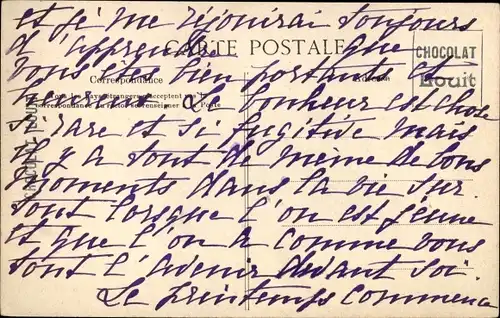 et je me réjouirai toujours
d'apprendre que
CARTE POSTALE
CHOCOLAT
Louit
vous êtes bien portante et
Correspondance
Adresse
Tous les Pays étrangers n'acceptent pas la
Correspondance au recto (se renseigner à la Poste)
heureuse. Le bonheur est chose
si rare et si fugitive mais
il y a tout de même de bons
moments dans la vie sur-
tout lorsque l'on est jeune
et que l'on a comme vous
tout l'avenir devant soi
Le printemps commence
CHOCOLAT LOUIT